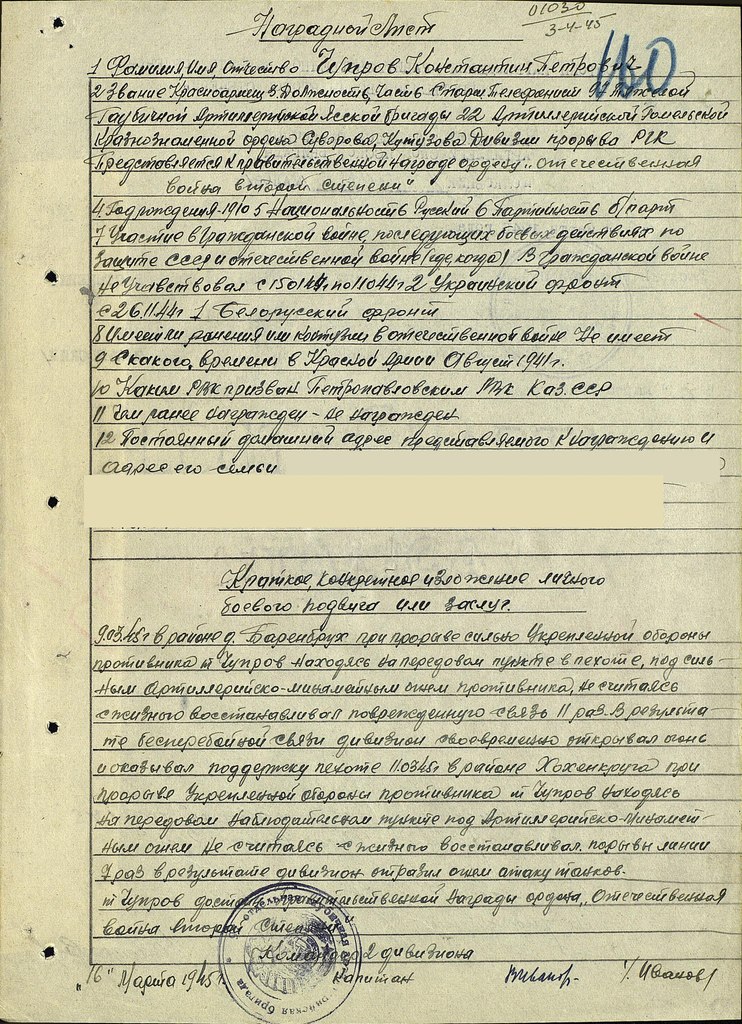 Наградной Лист
01030
3-4-45
110
1 Фамилия, Имя Отчество Чупров Константин Петрович
2 Звание Красноармеец 3. Должность, Часть Старш Телефонист
Гаубичной Артиллерийской Ясской бригады 22 Артиллерийской Гомельской
Краснознаменной ордена Суворова, Кутузова Дивизии прорыва РГК
Представляется к правительственной награде ордену „отечественная
война второй степени"
4 Год рождения-1910 5 Национальность Русский 6 Партийность б/парт
7 Участие в гражданской войне, последующих боевых действиях по
защите СССР и отечественной войне (где, когда) В гражданской войне
не участвовал с 15.01.44г по 1.10.44г 2 Украинский фронт
с 26.11.44г 1 Белорусский фронт
8 Имеет ли ранения или контузии в отечественной войне Не имеет
9 С какого, времени в Красной Армии Август 1941г.
10 Каким РВК призван Петропавловским РВК Каз.ССР
11 Чем ранее награжден - не награжден
12 Постоянный домашний адрес представляемого к награждению и
адрес его семьи
Краткое, конкретное изложение личного
боевого подвига или заслуг.
9.03.45г в районе д. Баренбрух при прорыве сильно укрепленной обороны
противника т Чупров находясь на передовом пункте в пехоте, под силь-
ным артиллерийско-минаметным огнем противника, не считаясь
с жизнью восстанавливал поврежденную связь 11 раз. В результа-
те бесперебойной связи дивизион своевременно открывал огонь
и оказывал поддержку пехоте 11.03.45г в районе Хохенкруга при
прорыве укрепленной обороны противника т Чупров находясь
на передовом наблюдательном пункте под Артиллерийско-минамет-
ным огнем не считаясь с жизнью восстанавливал порывы линии
9 раз в результате дивизион отразил огнем атаку танков.
т Чупров достоин правительственной награды ордена „Отечественная
война второй степени
Командир 2 дивизиона
"16" Марта 1945г. капитан /Иванов/